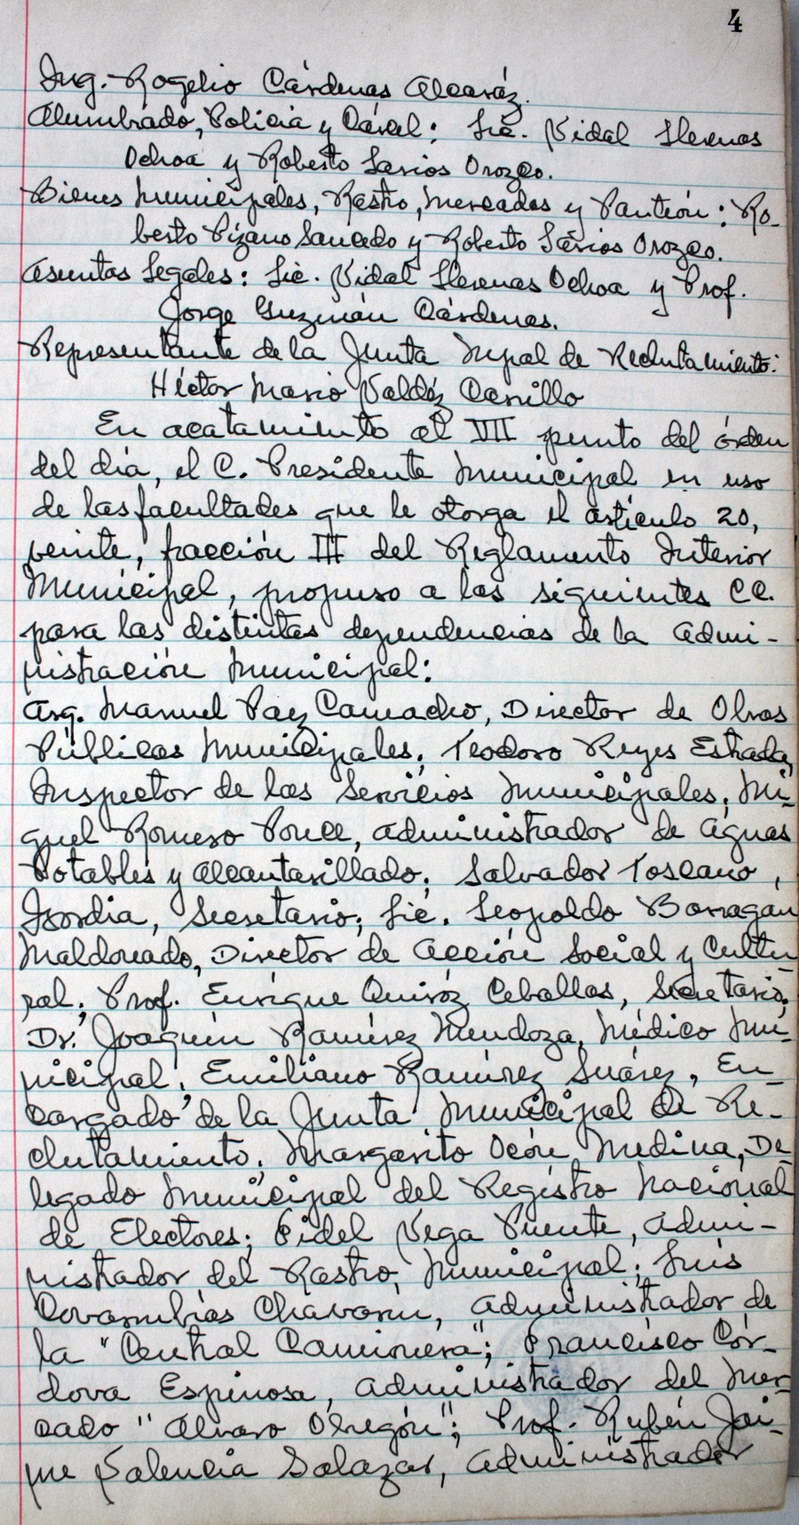 4
Ing. Rogelio Cárdenas Alcaráz.
Alumbrado, Policía y Cárcel: Lic. Vidal Llerenas
Ochoa y Roberto Larios Orozco.
Bienes Municipales, Rastro, Mercados y Panteón: Ro-
berto Pizano Saucedo y Roberto Larios Orozco.
Asuntos Legales: Lic. Vidal Llerenas Ochoa y Prof.
Jorge Guzmán Cárdenas.
Representante de la Junta Mpal de Reclutamiento:
Héctor Mario Valdéz Carrillo
En acatamiento al VIII punto del órden
del día, el C. Presidente Municipal en uso
de las facultades que le otorga el artículo 20,
veinte, fracción III del Reglamento Interior
Municipal, propuso a los siguientes CC.
para las distintas dependencias de la Admi-
nistración Municipal:
Arq. Manuel Paz Camacho, Director de Obras
Públicas Municipales; Teodoro Reyes Estrada,
Inspector de los Servicios Municipales; Mi-
guel Romero Ponce, Administrador de Aguas
Potables y Alcantarillado; Salvador Toscano,
Isordia, Secretario; Lic. Leopoldo Barragán
Maldonado, Director de Acción Social y Cultu-
ral; Prof. Enrique Quiróz Ceballos, Secretario;
Dr. Joaquín Ramírez Mendoza, Médico Mu-
nicipal; Emiliano Ramírez Suárez, En-
cargado de la Junta Municipal de Re-
clutamiento; Margarito Ocón Medina, De-
legado Municipal del Registro Nacional
de Electores; Fidel Vega Puente, Admi-
nistrador del Rastro Municipal; Luis
Covarrubias Chavarín, Administrador de
la "Central Camionera"; Francisco Cór-
dova Espinosa, Administrador del Mer-
cado "Alvaro Obregón"; Prof. Rubén Jai-
me Valencia Salazar, Administrador